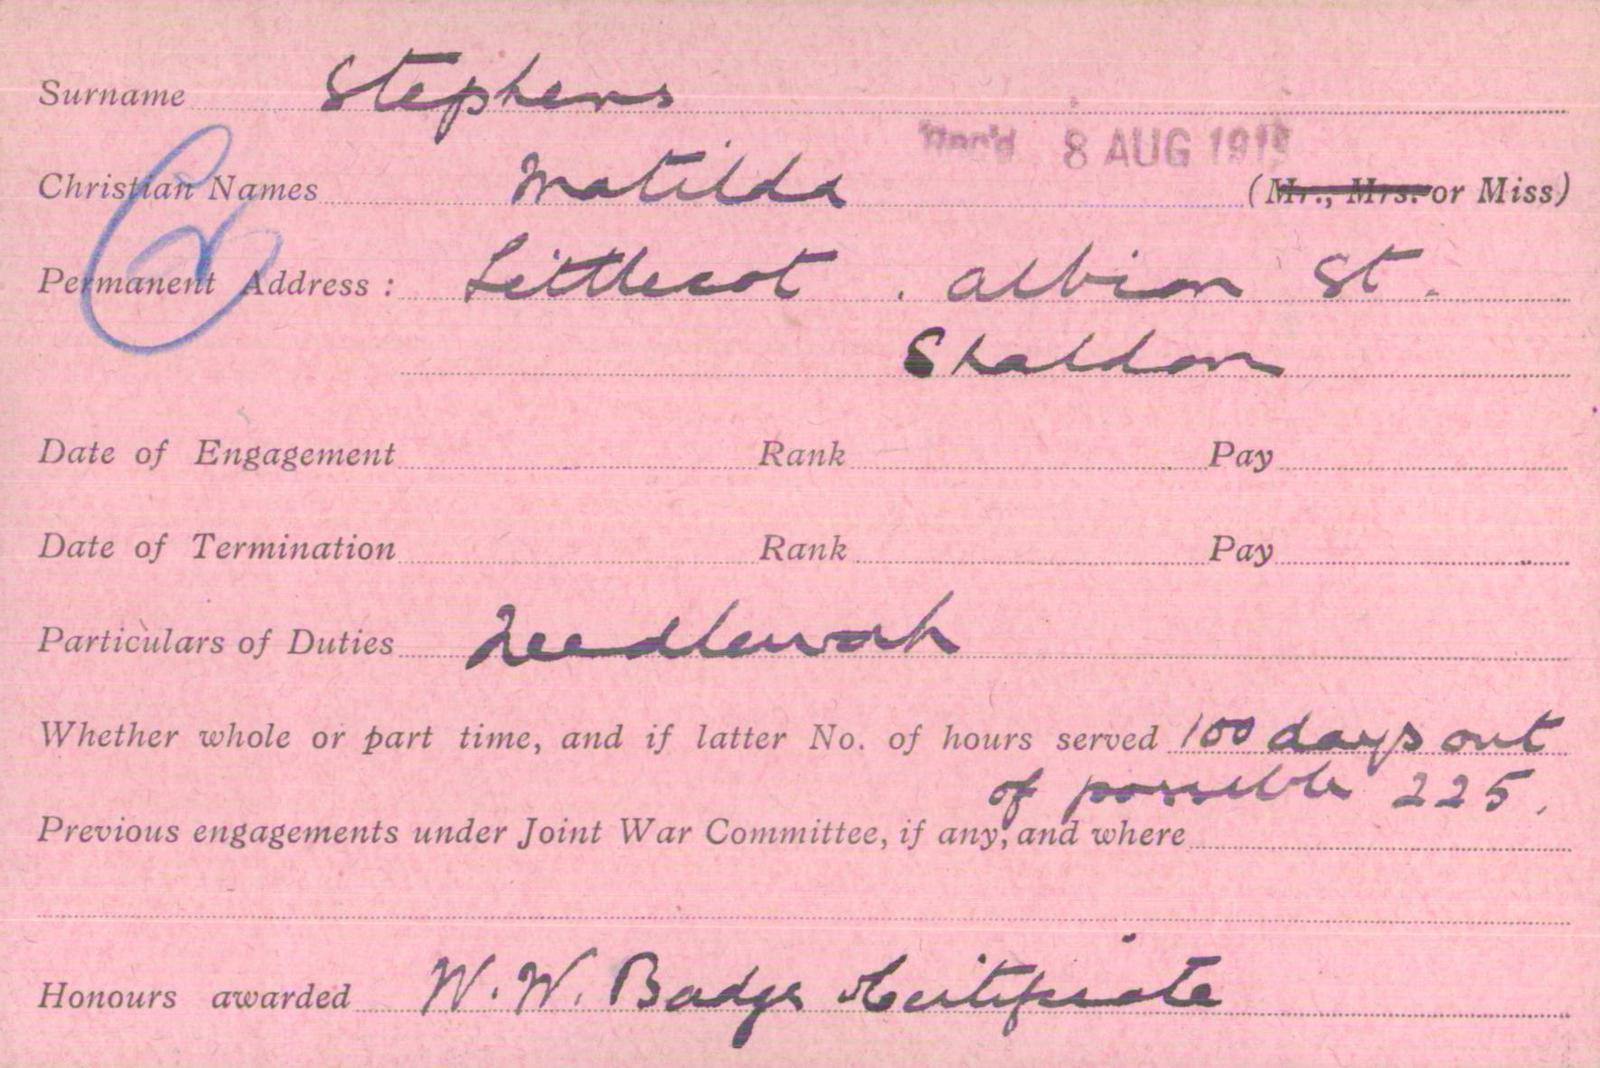 Surname Stephens
Rec'd 8 AUG 1919
Christian Names Matilda (Mr., Mrs. or Miss)
Permanent Address : Littlecot . Albion St.
Shaldon
Date of Engagement Rank Pay
Date of Termination Rank Pay
Particulars of Duties Needlework
Whether whole or part time, and if latter No. of hours served 100 days out
of possible 225.
Previous engagements under Joint War Committee, if any, and where
Honours awarded W. W. Badge & Certificate